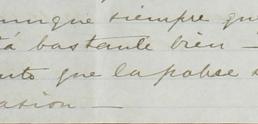 unque siempre qu
tá bastante bien —
nto que la pobre s
asion —